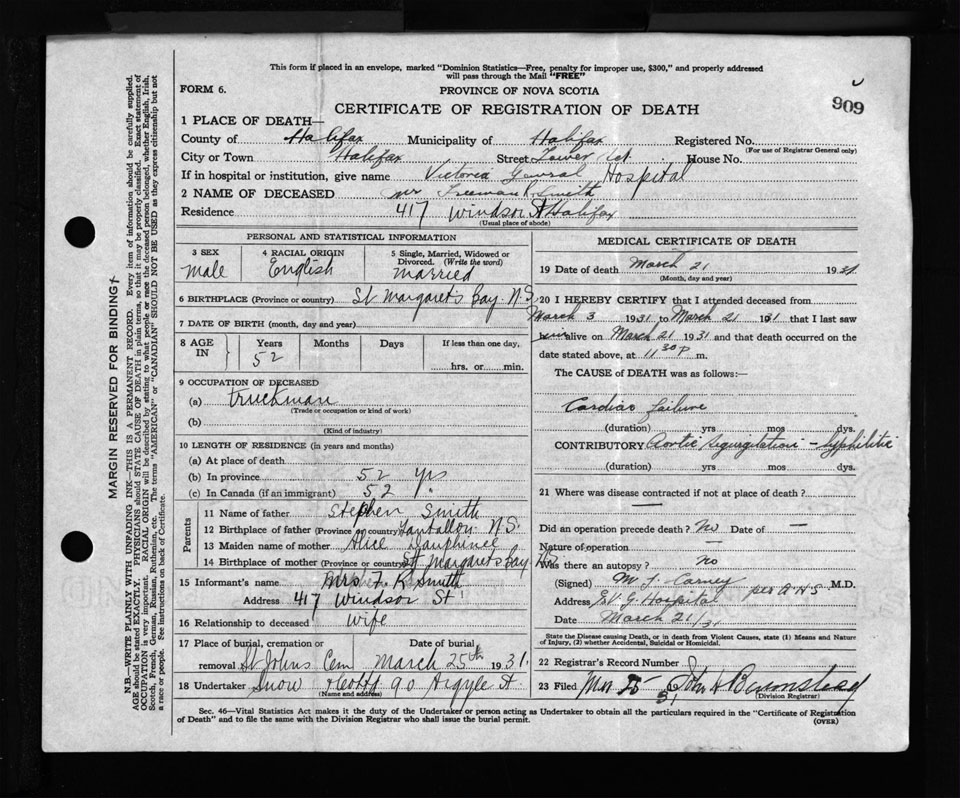 This form if placed in an envelope, marked "Dominion Statistics—Free, penalty for improper use, $300," and properly addressed
will pass through the Mail "FREE"
FORM 6.
PROVINCE OF NOVA SCOTIA
909
CERTIFICATE OF REGISTRATION OF DEATH
1 PLACE OF DEATH—
County of Halifax Municipality of Halifax Registered No.
(For use of Registrar General only)
City or Town Halifax Street Tower Rd. House No.
If in hospital or institution, give name Victoria General Hospital
2 NAME OF DECEASED Mr Freeman K. Smith
Residence 417 Windsor St Halifax
(Usual place of abode)
PERSONAL AND STATISTICAL INFORMATION
3 SEX Male
4 RACIAL ORIGIN English
5 Single, Married, Widowed or Divorced. (Write the word) married
6 BIRTHPLACE (Province or country) St Margaret's Bay. N.S.
7 DATE OF BIRTH (month, day and year)
8 AGE IN Years 52 Months Days If less than one day, hrs. or min.
9 OCCUPATION OF DECEASED
(a) truckman
(Trade or occupation or kind of work)
(b)
(Kind of industry)
10 LENGTH OF RESIDENCE (in years and months)
(a) At place of death
(b) In province 52 yrs
(c) In Canada (if an immigrant) 52 "
Parents
11 Name of father Stephen Smith
12 Birthplace of father (Province or country) Tantallon N.S.
13 Maiden name of mother Alice Dauphinee
14 Birthplace of mother (Province or country) St Margaret's Bay NS
15 Informant's name Mrs. F. K. Smith
Address 417 Windsor St
16 Relationship to deceased wife
17 Place of burial, cremation or removal St Johns Cem Date of burial March 25th 1931.
18 Undertaker Snow & Co Ltd 90 Argyle St
(Name and address)
MEDICAL CERTIFICATE OF DEATH
19 Date of death March 21 1931
(Month, day and year)
20 I HEREBY CERTIFY that I attended deceased from
March 3 1931 to March 21 1931 that I last saw
him alive on March 21 1931 and that death occurred on the
date stated above, at 11 30 P m.
The CAUSE of DEATH was as follows:—
Cardiac failure
(duration) yrs mos dys.
CONTRIBUTORY Aortic regurgitation - Syphilitic
(duration) yrs mos dys.
21 Where was disease contracted if not at place of death? —
Did an operation precede death? No Date of —
Nature of operation —
Was there an autopsy? No
(Signed) M. J. Carney per A H S. M.D.
Address V. G. Hospital
Date March 21/31
State the Disease causing Death, or in death from Violent Causes, state (1) Means and Nature
of Injury, (2) whether Accidental, Suicidal or Homicidal.
22 Registrar's Record Number
23 Filed Mar 25 31 John
(Division Registrar)
Sec. 46—Vital Statistics Act makes it the duty of the Undertaker or person acting as Undertaker to obtain all the particulars required in the "Certificate of Registration
of Death" and to file the same with the Division Registrar who shall issue the burial permit.
(OVER)
MARGIN RESERVED FOR BINDING
N.B.—WRITE PLAINLY WITH UNFADING INK—THIS IS A PERMANENT RECORD. Every item of information should be carefully supplied.
AGE should be stated EXACTLY. PHYSICIANS should STATE CAUSE OF DEATH in plain terms, so that it may be properly classified. Exact statement of
OCCUPATION is very important. RACIAL ORIGIN will be described by stating to what people or race the deceased person belonged, whether English, Irish,
Scotch, French, German, Russian, Ruthenian, etc. The terms "AMERICAN" or "CANADIAN" SHOULD NOT BE USED as they express citizenship but not
a race or people. See instructions on back of Certificate.